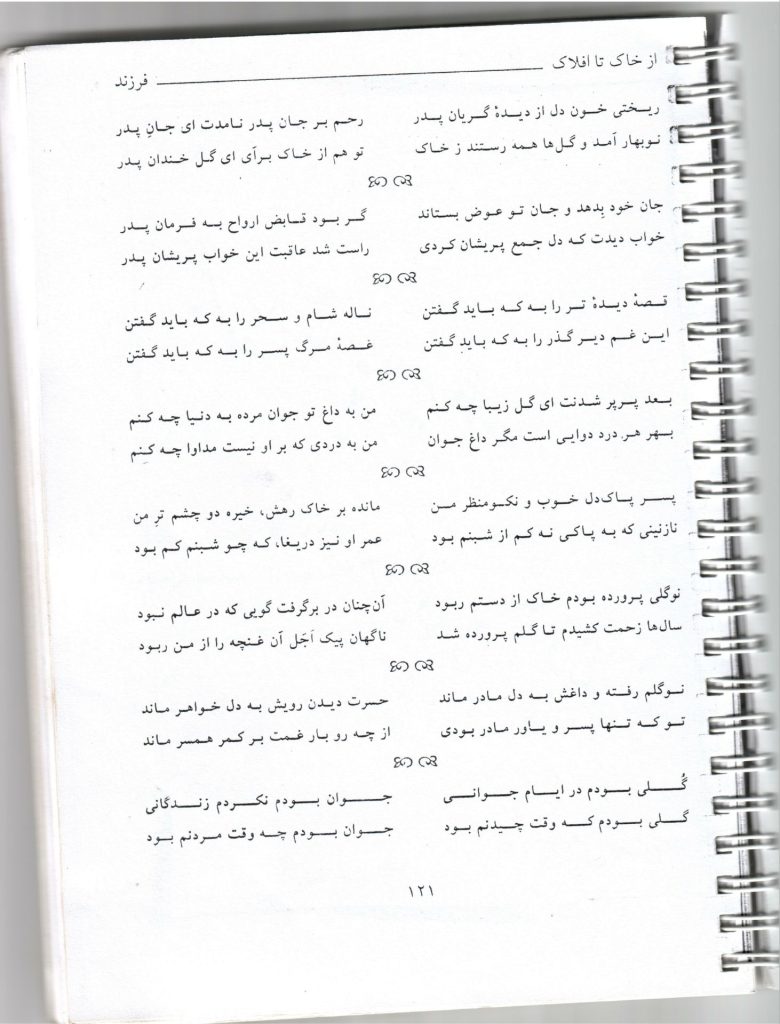 از خاک تا افلاک ـــــــــــــــــــــــــــــــــــــــ فرزند
ریختی خون دل از دیدهٔ گریان پدر    رحم بر جان پدر نامدت ای جانِ پدر
نوبهار آمد و گل‌ها همه رستند ز خاک    تو هم از خاک برآی ای گل خندان پدر
جان خود بِدهد و جان تو عوض بستاند    گر بود قابض ارواح به فرمان پدر
خواب دیدت که دل جمع پریشان کردی    راست شد عاقبت این خواب پریشان پدر
قصهٔ دیدهٔ تر را به که باید گفتن    ناله شام و سحر را به که باید گفتن
این غم دیر گذر را به که باید گفتن    غصهٔ مرگ پسر را به که باید گفتن
بعد پرپر شدنت ای گل زیبا چه کنم    من به داغ تو جوان مرده به دنیا چه کنم
بهر هر درد دوایی است مگر داغ جوان    من به دردی که بر او نیست مداوا چه کنم
پسر پاک‌دل خوب و نکومنظر من    مانده بر خاک رهش، خیره دو چشم ترِ من
نازنینی که به پاکی نه کم از شبنم بود    عمر او نیز دریغا، که چو شبنم کم بود
نوگلی پرورده بودم خاک از دستم ربود    آن‌چنان در برگرفت گویی که در عالم نبود
سال‌ها زحمت کشیدم تا گلم پرورده شد    ناگهان پیک اَجَل آن غنچه را از من ربود
نوگلم رفته و داغش به دل مادر ماند    حسرت دیدن رویش به دل خواهر ماند
تو که تنها پسر و یاور مادر بودی    از چه رو بار غمت بر کمر همسر ماند
گُلی بودم در ایام جوانی    جوان بودم نکردم زندگانی
گلی بودم که وقت چیدنم بود    جوان بودم چه وقت مردنم بود
۱۲۱